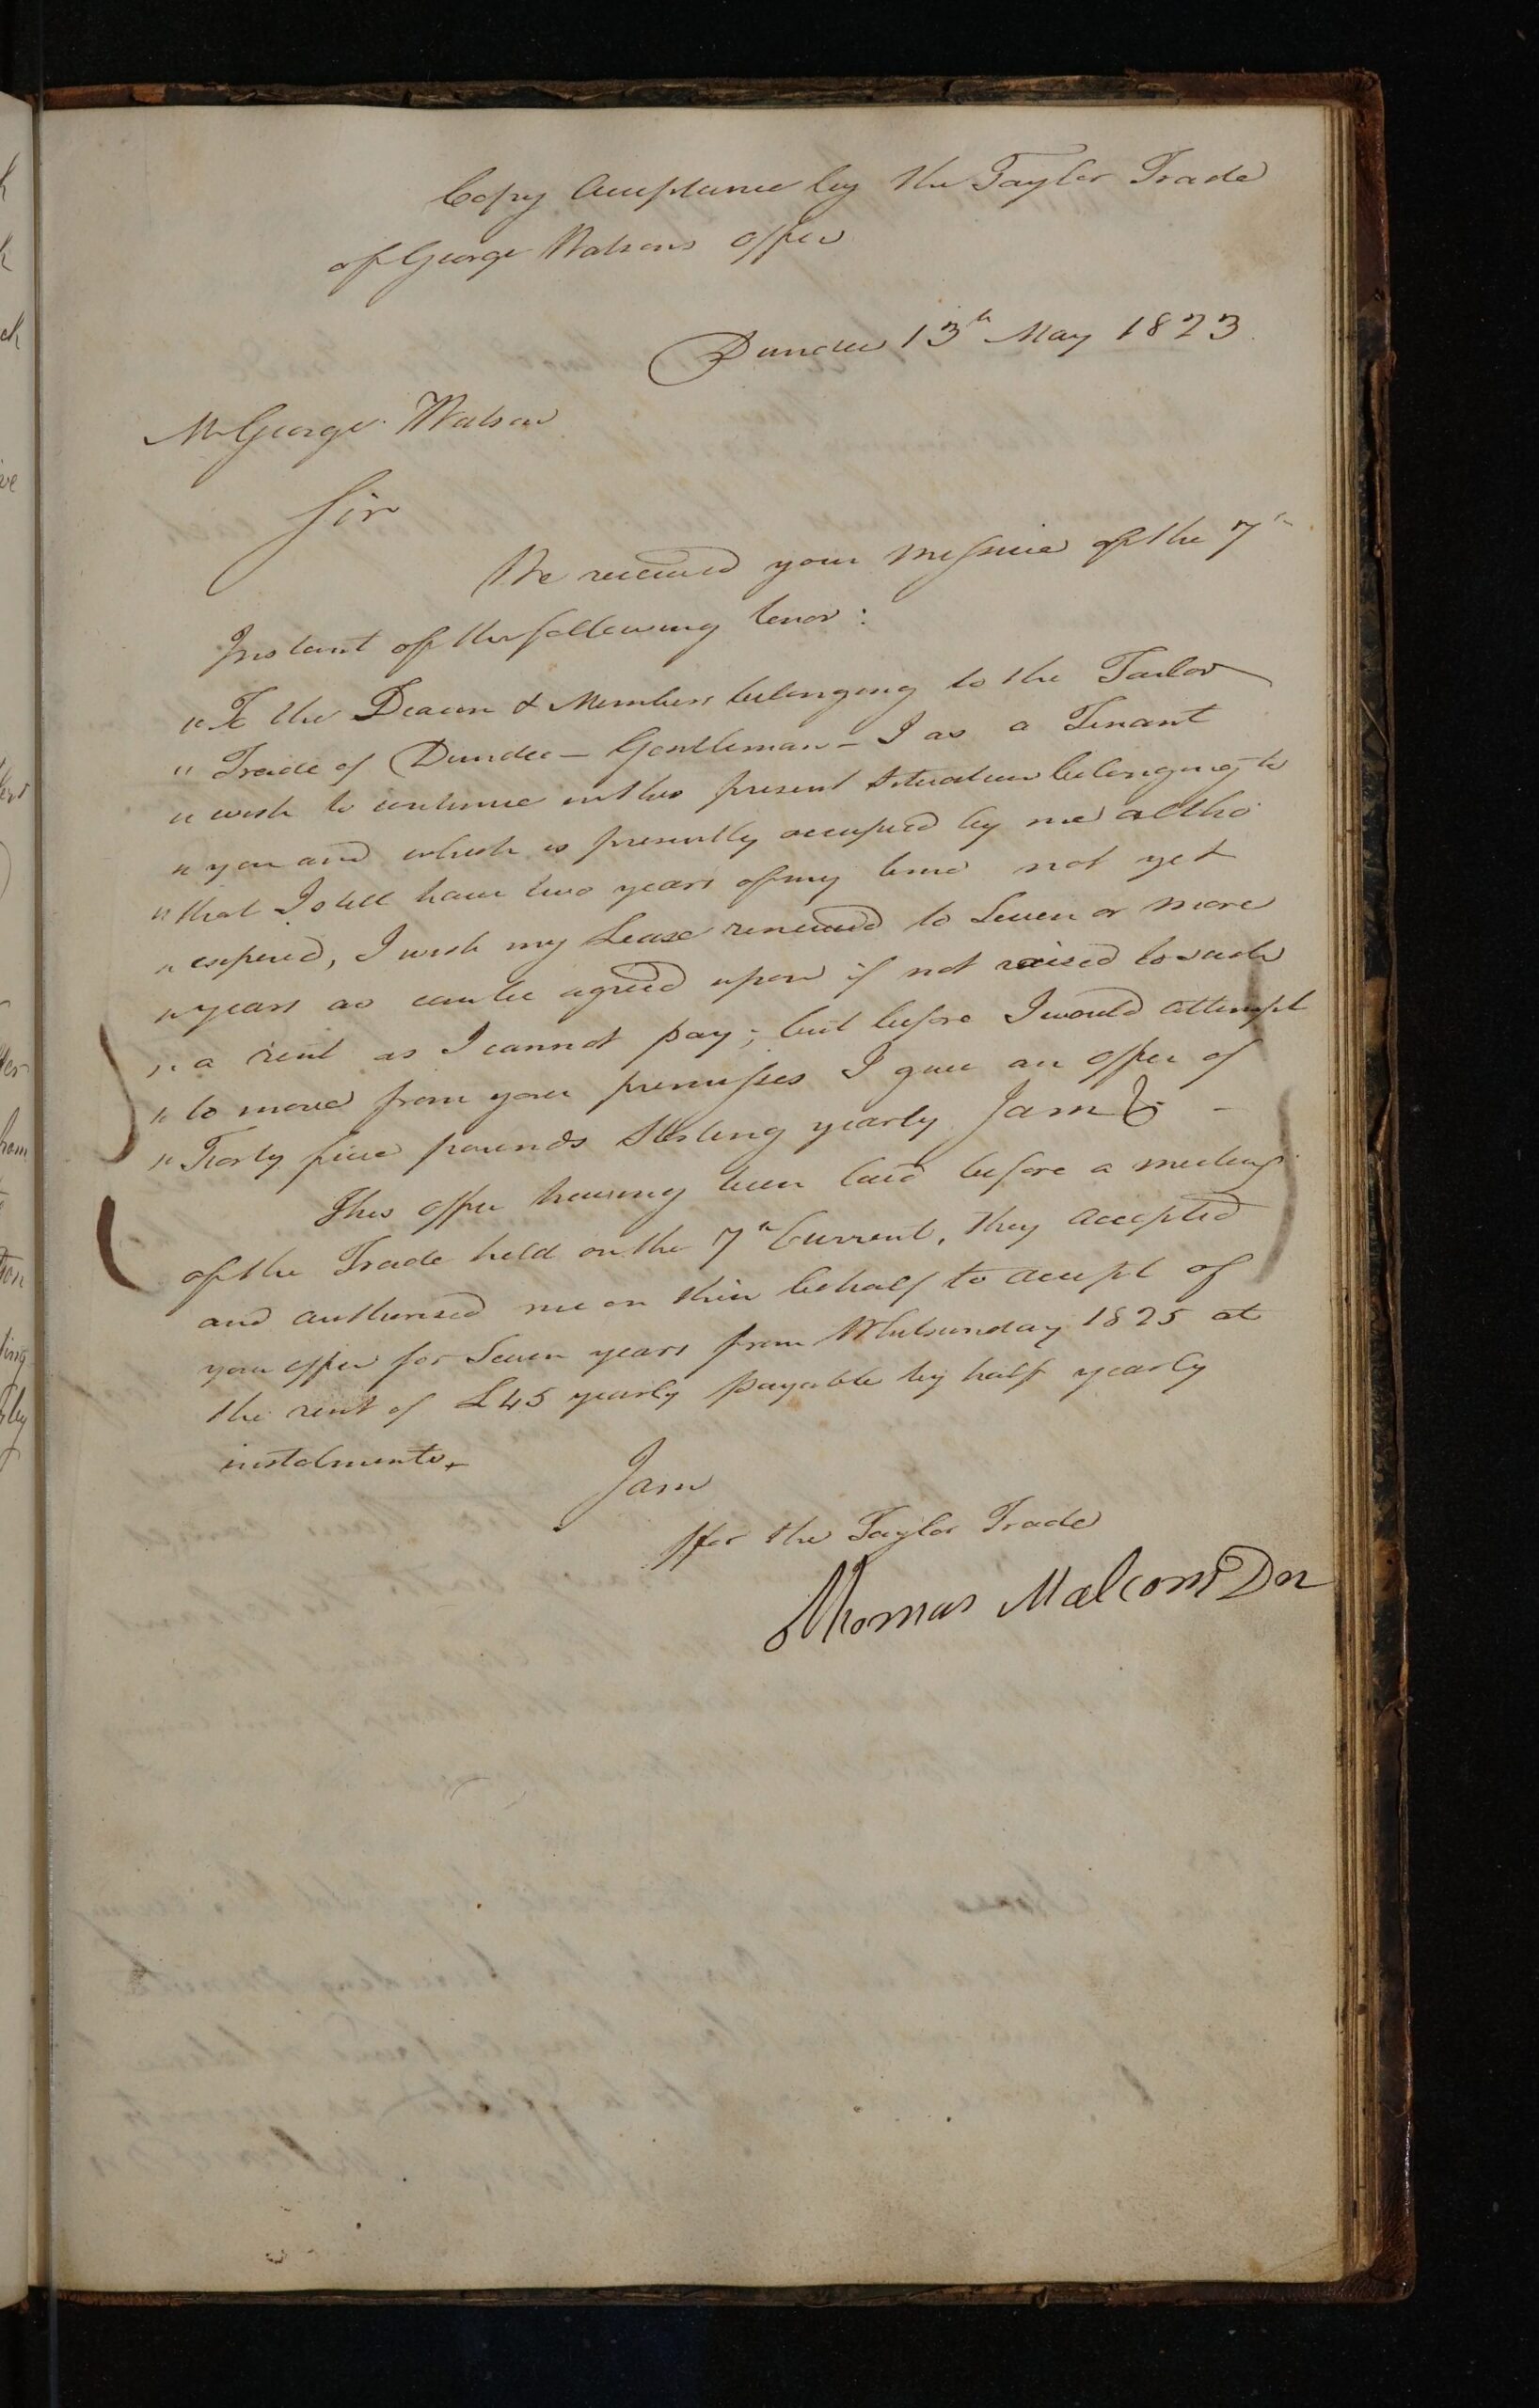 Copy Acceptance by the Taylor Trade
of George Watsons offer
Dundee 13th May 1823.
Mr George Watson
Sir
We received your missive of the 7th
Instant of the following tenor:
"To the Deacon & Members belonging to the Tailor
"Trade of Dundee – Gentleman – I as a Tenant
"wish to continue in the present situation belonging to
"you and which is presently occupied by me altho
"that I still have two years of my time not yet
"expired, I wish my Lease renewed to Seven or more
"years as can be agreed upon if not raised to such
"a rent as I cannot pay; but before I would attempt
"to move from your premisses I give an offer of
"Forty five pounds Sterling yearly I am &c –
This offer having been laid before a meeting
of the Trade held on the 7th Current, they accepted
and authorised me on their behalf to accept of
your offer for Seven years from Whitsunday 1825 at
the rent of £45 yearly payable by half yearly
instalments.
I am
for the Taylor Trade
Thomas Malcom Dn